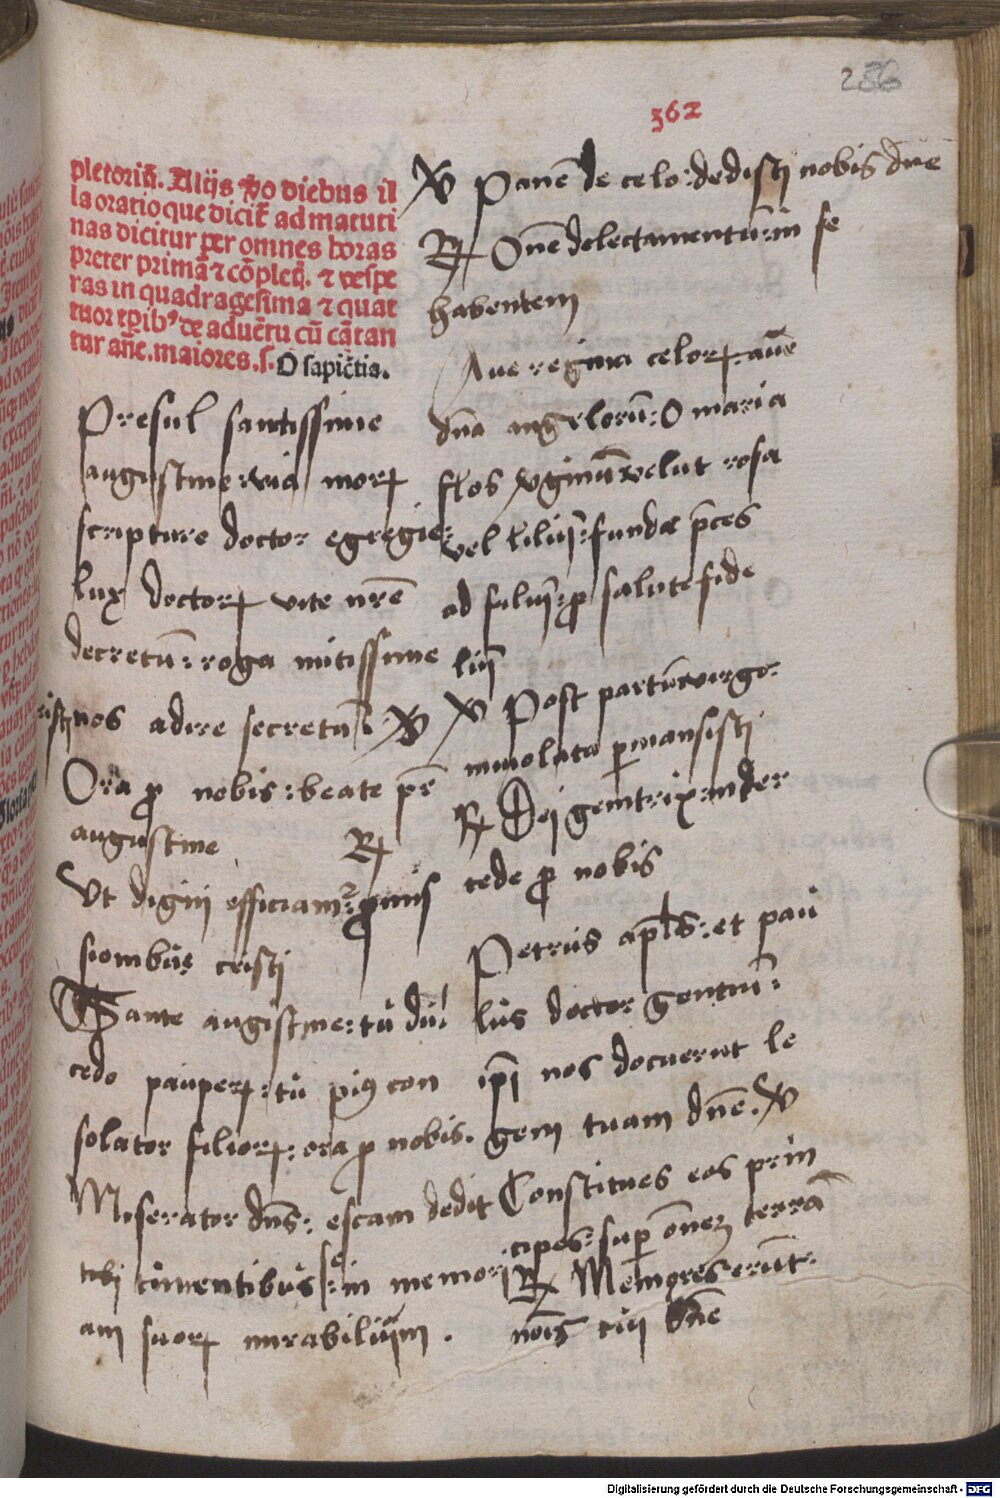 256
362
pletoriū. Alijs vo diebus il
la oratio que dicit̄ ad matuti
nas dicitur per omnes horas
preter primā ⁊ cōpleꝫ. ⁊ vespe
ras in quadragesima ⁊ quat
tuor tp̄ibꝰ de aduētu cū cātan
tur añe. maiores. s. O sapiētia.
Presul santissime
augustine: via morꝝ
scripture doctor egregie:
lux doctorꝝ vite nr̄e
decretū: roga mitissime
nos adire secretū: ℣
Ora ꝓ nobis: beate pr̄
augustine ℟
Vt digni efficiamr̄: ꝓmis
sionibus cristi
Sante augustine: tu dul
cedo pauperꝝ: tu piꝰ con
solator filiorꝝ: ora ꝓ nobis.
Miserator dn̄s: escam dedit
timentibus se: in memori
am suorꝝ mirabilium.
℣ Panē de celo: dedisti nobis dn̄e
℟ Om̄e delectamentū: in se
habentem
Aue regina celorꝝ: aue
dn̄a angelorū: O maria
flos v̄ginū: velut rosa
vel liliū: funde p̄ces
ad filiū: ꝓ salute fide
liū
℣ Post partū: virgo:
inuiolata ꝑmansisti
℟ Dei genitrix: inter
cede ꝓ nobis
Petrus apl̄s: et pau
lus doctor gentiū:
ip̄i nos docuerūt le
gem tuam dn̄e. ℣
Constitues eos prin
cipes: suꝑ om̄eꝫ terrā
℟ Memores erūt:
nōis tui dn̄e
Digitalisierung gefördert durch die Deutsche Forschungsgemeinschaft - DFG